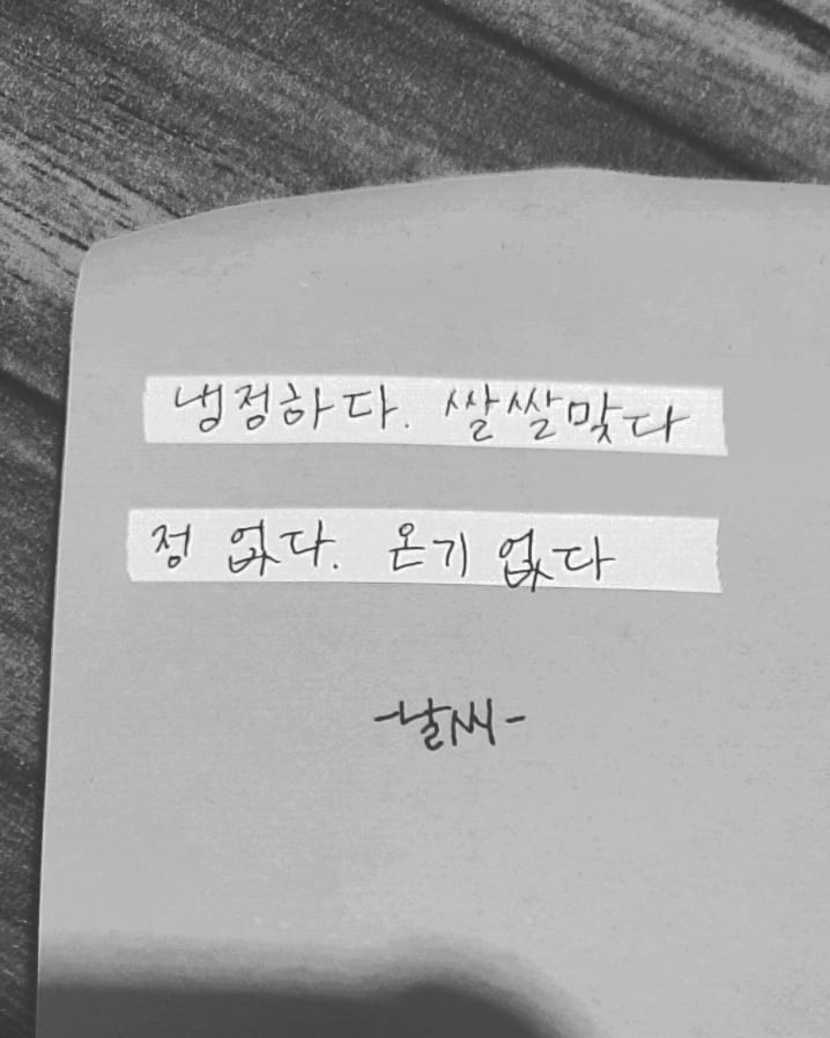 냉정하다. 쌀쌀맞다
정 없다. 온기 없다
-날씨-